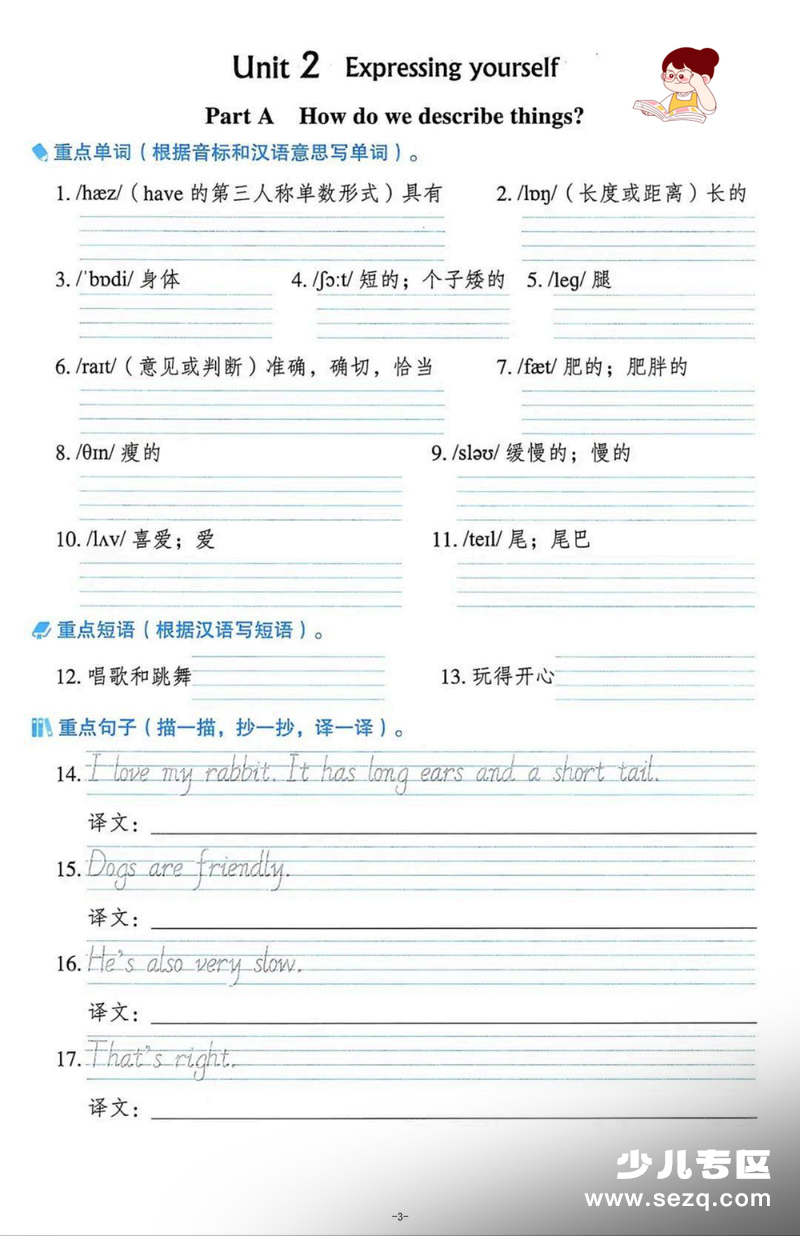 Unit 2 Expressing yourself
Part A How do we describe things?
重点单词（根据音标和汉语意思写单词）。
1. /hæz/（have 的第三人称单数形式）具有 2. /lɒŋ/（长度或距离）长的
3. /ˈbɒdi/ 身体 4. /ʃɔːt/ 短的；个子矮的 5. /leɡ/ 腿
6. /raɪt/（意见或判断）准确，确切，恰当 7. /fæt/ 肥的；肥胖的
8. /θɪn/ 瘦的 9. /sləʊ/ 缓慢的；慢的
10. /lʌv/ 喜爱；爱 11. /teɪl/ 尾；尾巴
重点短语（根据汉语写短语）。
12. 唱歌和跳舞 13. 玩得开心
重点句子（描一描，抄一抄，译一译）。
14. I love my rabbit. It has long ears and a short tail.
译文：
15. Dogs are friendly.
译文：
16. He's also very slow.
译文：
17. That's right.
译文：
少儿专区
www.sezq.com
-3-